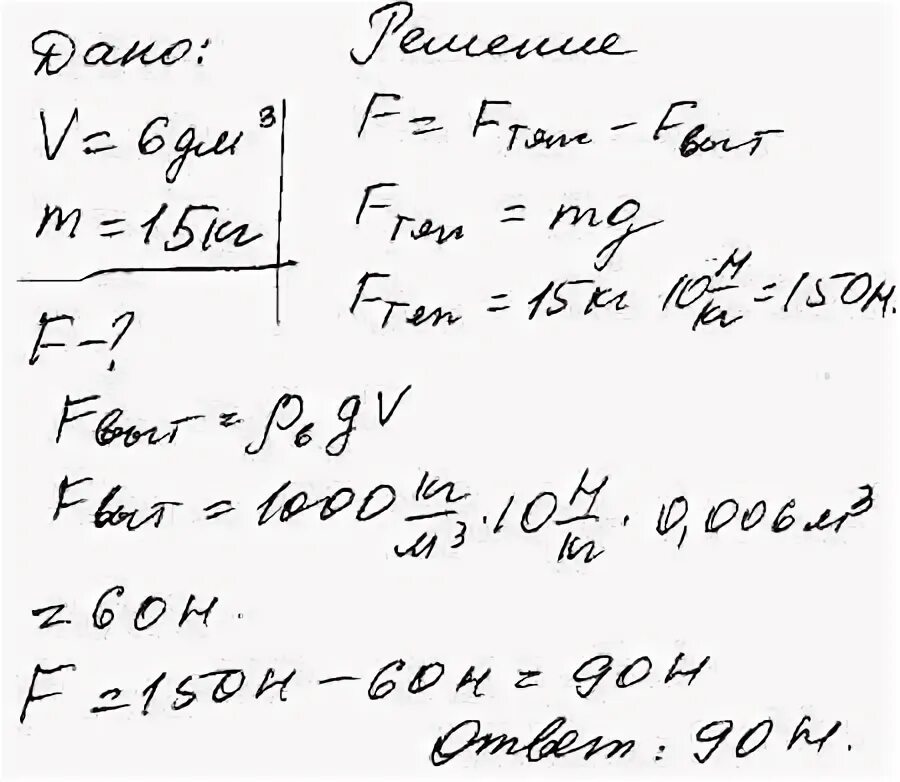 Дано:
V = 6 дм³
m = 15 кг
F - ?
Решение
F = Fтяж - Fвыт
Fтяж = mg
Fтяж = 15 кг 10 Н/кг = 150 Н.
Fвыт = ρв gV
Fвыт = 1000 кг/м³ · 10 Н/кг · 0,006 м³
= 60 Н.
F = 150 Н - 60 Н = 90 Н
Ответ: 90 Н.